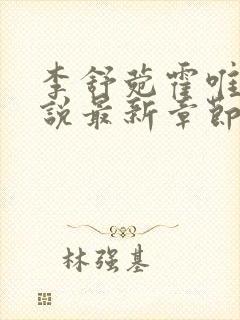 李舒菀霍唯
說最新章節
林强基